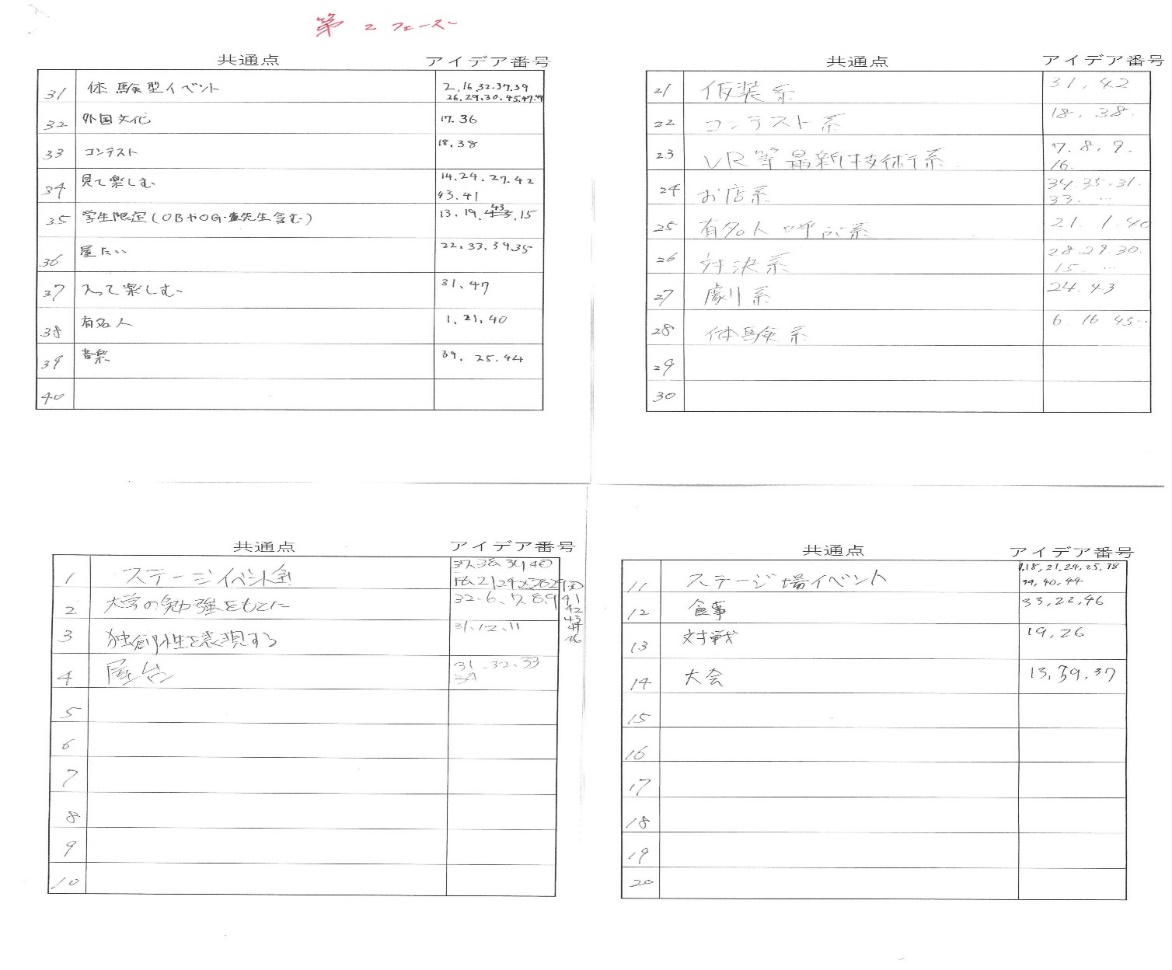 第2フェーズ
共通点 アイデア番号
31 体験型イベント 2.16.32.37.39
26.29.30.45.47.
32 外国文化 17.36
33 コンテスト 18.38
34 見て楽しむ 14.24.27.42
43.41
35 学生限定(OBやOG・先生含む) 13.19.43.15
36 屋たい 22.33.34.35
37 入って楽しむ 31.47
38 有名人 1.21.40
39 音楽 39.25.44
40
共通点 アイデア番号
21 仮装系 31.42
22 コンテスト系 18.38.
23 VR等最新技術系 7.8.9.
16.
24 お店系 34 35.31.
33. …
25 有名人呼ぶ系 21.1.40
26 対決系 28.29.30.
15. …
27 劇系 24.43
28 体験系 6 16 45…
29
30
共通点 アイデア番号
1 ステージイベント
2 大学の勉強をもとに 32.6.7.8.9
3 独創性を表現する 31.12.11
4 屋台 31.32.33
34
5
6
7
8
9
10
共通点 アイデア番号
11 ステージ場イベント 1,18,21,24,25,38
39,40,44
12 食事 33,22,46
13 対戦 19,26
14 大会 13,39,37
15
16
17
18
19
20